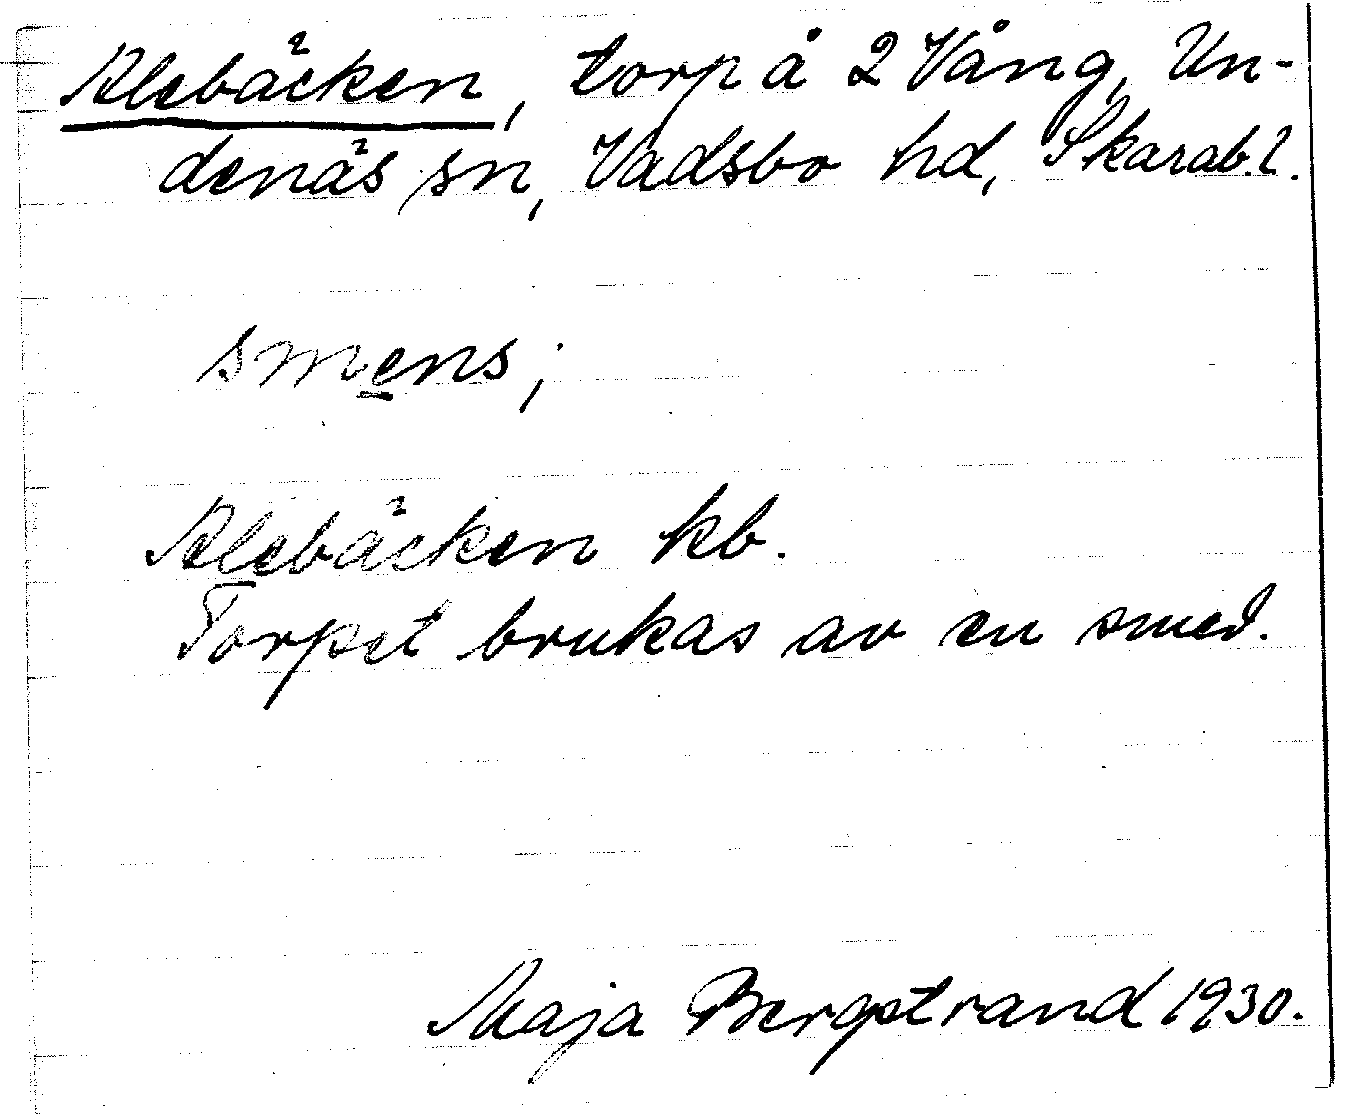 Alebäcken, torp å 2 Vång, Un-
denäs sn, Vadsbo hd, Skarab. l.
smens;
Alebäcken kb.
Torpet brukas av en smed.
Maja Bergstrand 1930.